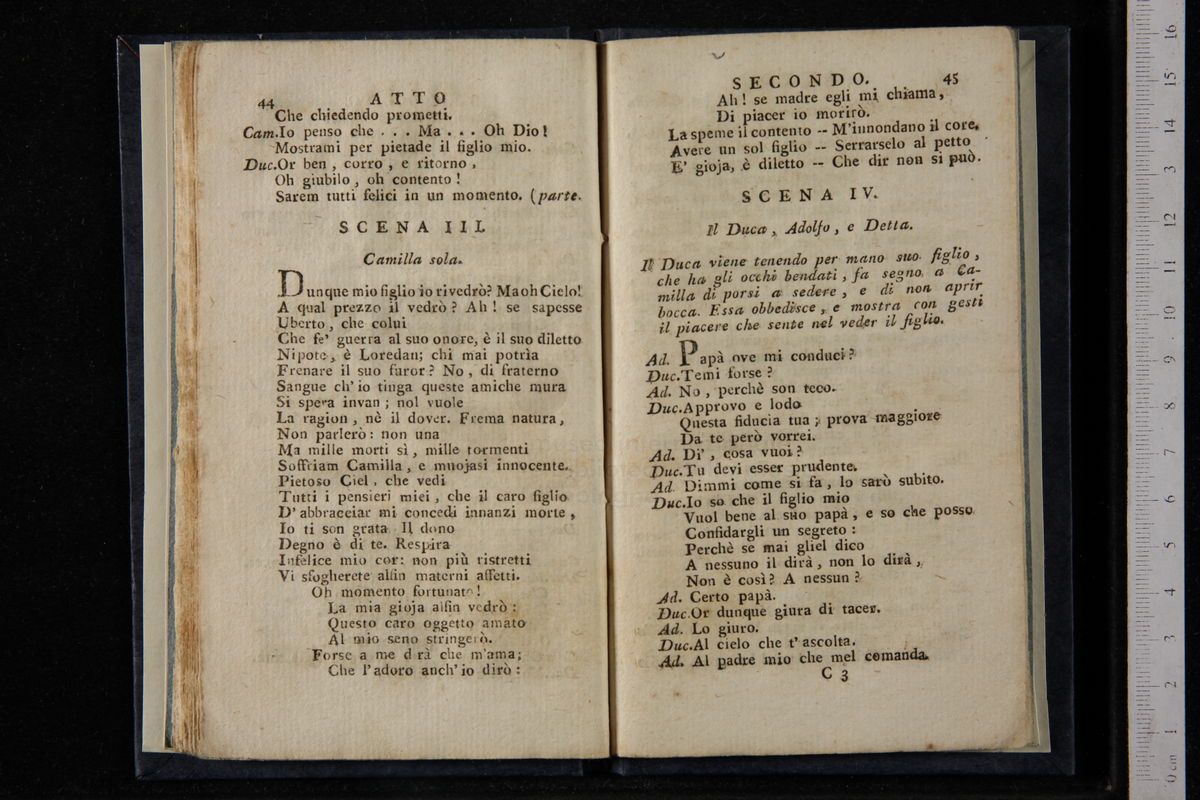 44 ATTO
Che chiedendo prometti.
Cam. Io penso che . . . Ma . . . Oh Dio!
Mostrami per pietade il figlio mio.
Duc. Or ben, corro, e ritorno,
Oh giubilo, oh contento!
Sarem tutti felici in un momento. (parte.
SCENA III.
Camilla sola.
Dunque mio figlio io rivedrò? Ma oh Cielo!
A qual prezzo il vedrò? Ah! se sapesse
Uberto, che colui
Che fe' guerra al suo onore, è il suo diletto
Nipote, è Loredan; chi mai potrìa
Frenare il suo furor? No, di fraterno
Sangue ch' io tinga queste amiche mura
Si spera invan; nol vuole
La ragion, nè il dover. Frema natura,
Non parlerò: non una
Ma mille morti sì, mille tormenti
Soffriam Camilla, e muojasi innocente.
Pietoso Ciel, che vedi
Tutti i pensieri miei, che il caro figlio
D' abbracciar mi concedi innanzi morte,
Io ti son grata Il dono
Degno è di te. Respira
Infelice mio cor: non più ristretti
Vi sfogherete alfin materni affetti.
Oh momento fortunato!
La mia gioja alfin vedrò:
Questo caro oggetto amato
Al mio seno stringerò.
Forse a me dirà che m'ama;
Che l'adoro anch' io dirò:
SECONDO. 45
Ah! se madre egli mi chiama,
Di piacer io morirò.
La speme il contento -- M'innondano il core.
Avere un sol figlio -- Serrarselo al petto
E' gioja, è diletto -- Che dir non si può.
SCENA IV.
Il Duca, Adolfo, e Detta.
Il Duca viene tenendo per mano suo figlio,
che ha gli occhi bendati, fa segno a Ca-
milla di porsi a sedere, e di non aprir
bocca. Essa obbedisce, e mostra con gesti
il piacere che sente nel veder il figlio.
Ad. Papà ove mi conduci?
Duc. Temi forse?
Ad. No, perchè son teco.
Duc. Approvo e lodo
Questa fiducia tua; prova maggiore
Da te però vorrei.
Ad. Di', cosa vuoi?
Duc. Tu devi esser prudente.
Ad. Dimmi come si fa, lo sarò subito.
Duc. Io so che il figlio mio
Vuol bene al suo papà, e so che posso
Confidargli un segreto:
Perchè se mai gliel dico
A nessuno il dirà, non lo dirà,
Non è così? A nessun?
Ad. Certo papà.
Duc. Or dunque giura di tacer.
Ad. Lo giuro.
Duc. Al cielo che t' ascolta.
Ad. Al padre mio che mel comanda.
C 3
0 cm 1 2 3 4 5 6 7 8 9 10 11 12 13 14 15 16